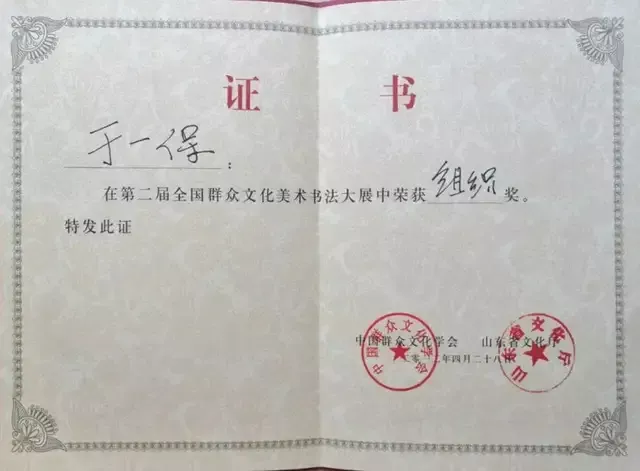 证 书
于一保：
在第二届全国群众文化美术书法大展中荣获组织奖。
特发此证
中国群众文化学会 山东省文化厅
二〇一二年四月二十八日
中国群众文化学会
山东省文化厅